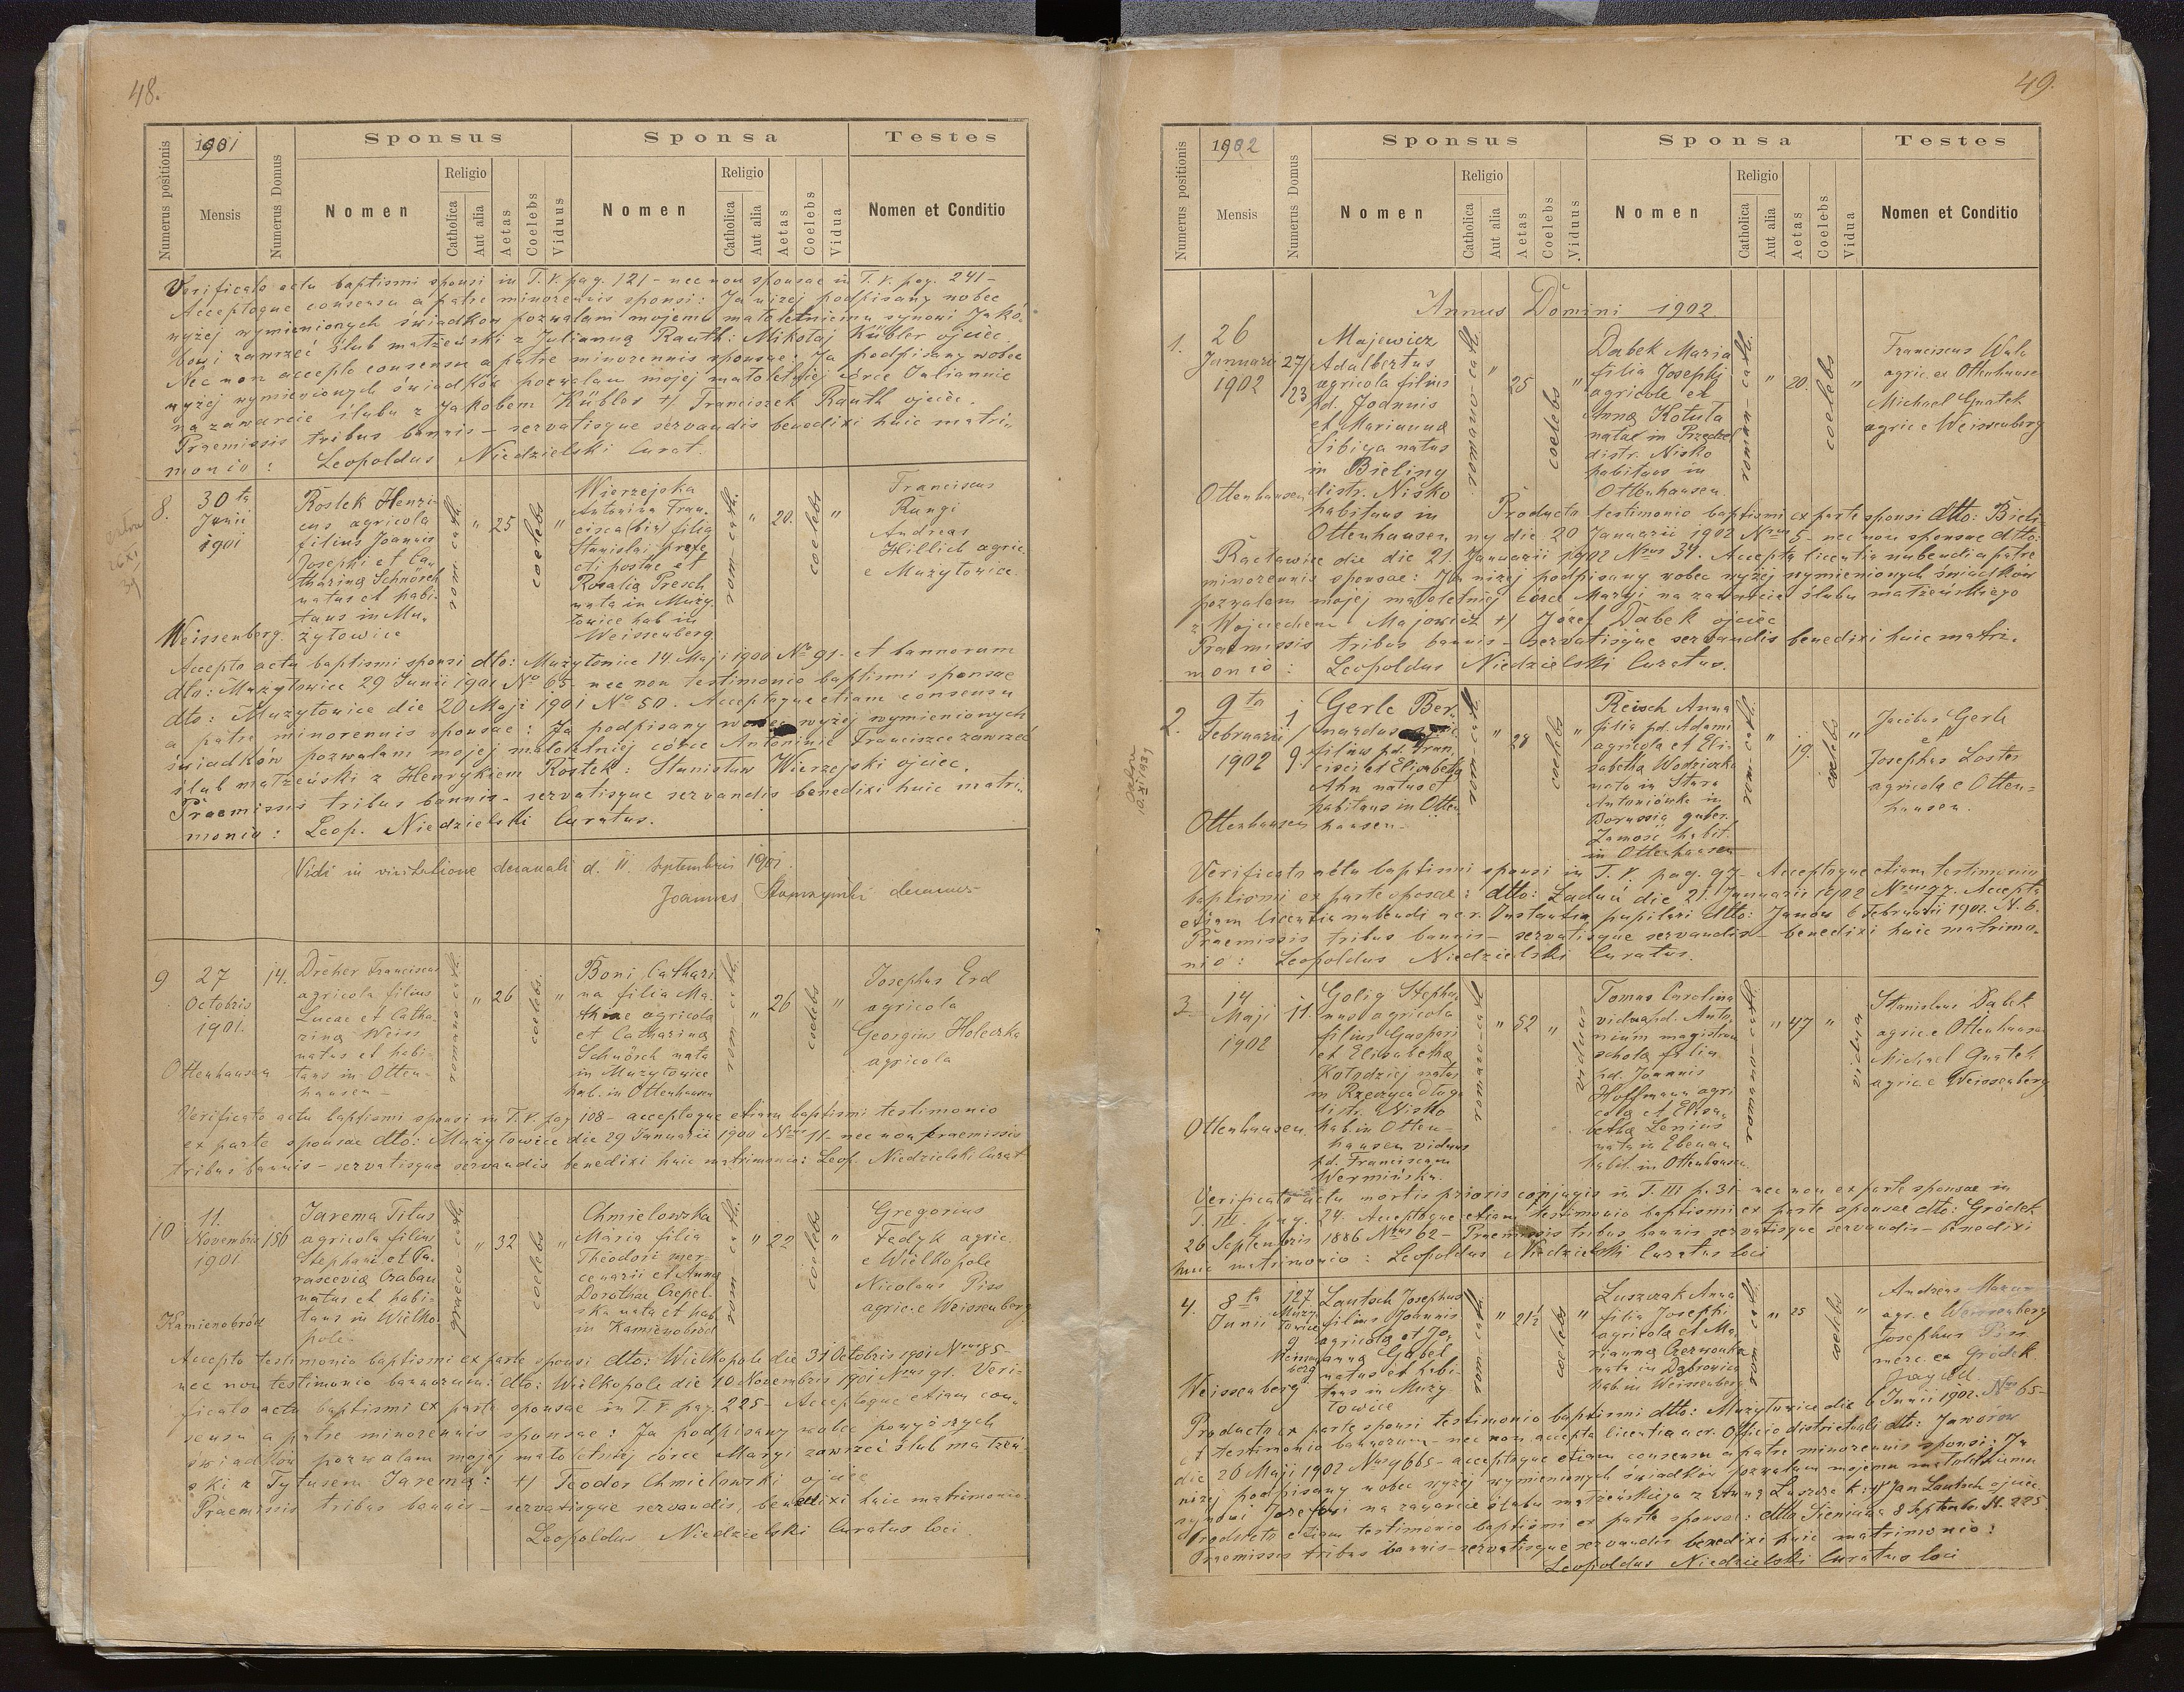 48.
1901
Numerus positionis
Mensis
Numerus Domus
Sponsus
Nomen
Religio
Catholica
Aut alia
Aetas
Coelebs
Viduus
Sponsa
Nomen
Religio
Catholica
Aut alia
Aetas
Coelebs
Vidua
Testes
Nomen et Conditio
Verificato actu baptismi sponsi in T. V. pag. 121 – nec non sponsae in T. V. pag. 241 –
Acceptoque consensu a patre minorennis sponsi: Ja niżej podpisany wobec
wyżej wymienionych świadków pozwalam mojemu małoletniemu synowi Jakó-
bowi zawrzeć ślub małżeński z Julianną Rauth: Mikołaj Kübler ojciec.
Nec non accepto consensu a patre minorennis sponsae: Ja podpisany wobec
wyżej wymienionych świadków pozwalam mojej małoletniej córce Juliannie
na zawarcie ślubu z Jakóbem Kübler +/ Franciszek Rauth ojciec.
Praemissis tribus bannis – servatisque servandis benedixi huic matri-
monio: Leopoldus Niedzielski Curat.
8.
30 ta
Junii
1901
Weissenberg.
Rostek Henri-
cus agricola
filius Joannis
Josephi et Ca-
tharina Schnösch
natus et habi-
tans in Mu-
żyłowice
rom-cath.
"
25
coelebs
"
Wierzejska
Antonina Fran-
cisca (bin) filia
Stanislai prefe
cti postae et
Rosalia Presch
nata in Muży-
łowice hab in
Weissenberg.
rom-cath.
"
20.
coelebs
"
Franciscus
Rungi
Andreas
Hillich agric.
e Mużyłowice.
Accepto actu baptismi sponsi dto: Mużyłowice 14 Maji 1900 No 91 – et bannorum
dto: Mużyłowice 29 Junii 1901 No 65 – nec non testimonio baptismi sponsae
dto: Mużyłowice die 20 Maji 1901 No 50. Acceptoque etiam consensu
a patre minorennis sponsae: Ja podpisany wobec wyżej wymienionych
świadków pozwalam mojej małoletniej córce Antoninie Franciszce zawrzeć
ślub małżeński z Henrykiem Rostek: Stanisław Wierzejski ojciec.
Praemissis tribus bannis – servatisque servandis benedixi huic matri-
monio: Leop. Niedzielski Curatus.
Vidi in visitatione decanali d. 11 Septembris 1901.
Joannes decanus
9
27
Octobris
1901.
14.
Ottenhausen
Dreher Franciscus
agricola filius
Lucae et Catha-
rina Weiss
natus et habi-
tans in Otten-
hausen –
romano-cath.
"
26
coelebs.
"
Boni Cathari-
na filia Ma-
thiae agricola
et Catharina
Schnösch nata
in Mużyłowice
hab. in Ottenhausen
rom-cath.
"
26
coelebs
"
Josephus Erd
agricola
Georgius Holeczka
agricola
Verificato actu baptismi sponsi in T. V. pag 108 – acceptoque etiam baptismi testimonio
ex parte sponsae dto: Mużyłowice die 29 Januarii 1900 Nrus 11 – nec non praemissis
tribus bannis – servatisque servandis benedixi huic matrimonio: Leop. Niedzielski Curat
10
11.
Novembris
1901.
156
Kamienobród
Jarema Titus
agricola filius
Stephani et Pa-
rascevia Craban
natus et habi-
tans in Wielko
pole
graeco cath
"
32
coelebs
"
Chmielowska
Maria filia
Theodori mer-
cenarii et Anna
Dorothae Czepel-
ska nata et hab.
in Kamienobród
rom-cath.
"
22
coelebs
"
Gregorius
Fedyk agric.
e Wielkopole
Nicolaus Piss
agric. e Weissenberg
Accepto testimonio baptismi ex parte sponsi dto: Wielkopole die 31 Octobris 1901 Nrus 85 –
nec non testimonio bannorum: dto: Wielkopole die 10 Novembris 1901 Nrus 91. Veri-
ficato actu baptismi ex parte sponsae in T. V. pag. 225 – Acceptoque etiam con-
sensu a patre minorennis sponsae: Ja podpisany wobec powyższych
świadków pozwalam mojej małoletniej córce Maryi zawrzeć ślub małżeń-
ski z Tytusem Jaremą: +/ Teodor Chmielowski ojciec
Praemissis tribus bannis – servatisque servandis, benedixi huic matrimonio
Leopoldus Niedzielski Curatus loci
49.
1902
Numerus positionis
Mensis
Numerus Domus
Sponsus
Nomen
Religio
Catholica
Aut alia
Aetas
Coelebs
Viduus
Sponsa
Nomen
Religio
Catholica
Aut alia
Aetas
Coelebs
Vidua
Testes
Nomen et Conditio
Annus Domini 1902
1.
26
Januarii
1902
27/
/23
Ottenhausen
Majewicz
Adalbertus
agricola filius
pd. Joannis
et Marianna
Sibiga natus
in Bieliny
distr. Nisko
habitans in
Ottenhausen
romano-cath.
"
25
coelebs
"
Dąbek Maria
filia Josephi
agricolae et
Anna Kotuła
natae in Przędzel
distr. Nisko
habitans in
Ottenhausen.
romano-cath.
"
20.
coelebs
"
Franciscus Wala
agric. ex Ottenhausen
Michael Gnatek
agric e Weissenberg
Producto testimonio baptismi ex parte sponsi dtto: Bieli-
ny die 20 Januarii 1902 Nrus 5 – nec non sponsae dtto:
Racławice die die 21 Januarii 1902 Nrus 34. Accepta licentia nubendi a patre
minorennis sponsae: Ja niżej podpisany wobec wyżej wymienionych świadków
pozwalam mojej małoletniej córce Maryi na zawarcie ślubu małżeńskiego
z Wojciechem Majewicz +/ Józef Dąbek ojciec
Praemissis tribus bannis – servatisque servandis benedixi huic matri-
monio: Leopoldus Niedzielski Curatus.
2.
9 ta
Februarii
1902
1
/
9.
Ottenhausen
Gerle Ber-
nardus
filius pd. Fran-
cisci et Elisabetha
Ahn natus et
habitans in Otten-
hausen –
rom-cath
"
28
coelebs
"
Reisch Anna
filia pd. Adami
agricola et Eli-
sabetha Wodziczka
nata in Stara
Antoniówka in
Borussia guber.
Zamość habit.
in Ottenhausen
rom-cath.
"
19.
coelebs
"
Jacobus Gerle
et
Josephus Koster
agricola e Otten-
hausen.
Verificato actu baptismi sponsi in T. V. pag. 97 – Acceptoque etiam testimonio
baptismi ex parte sposae: dtto: Laduń die 21 Januarii 1902 Nrus 77. Accepta
etiam licentia nubendi a c. r. Instantia pupilari dtto: Janow 6 Februarii 1902. N. 6.
Praemissis tribus bannis – servatisque servandis – benedixi huic matrimo-
nio: Leopoldus Niedzielski Curatus.
3.
14
Maji
1902
11.
Ottenhausen
Golig Stepha-
nus agricola
filius Gaspari
et Elisabetha
Kołodziej natus
in Rzeczyca długa
distr. Nisko
hab. in Otten-
hausen viduus
pd. Franciscam
Wermińska.
romano-cath
"
52
"
viduus
Tomas Carolina
vidua pd. Anto-
nium magistrum
schola filia
pd. Joannis
Hoffmann agri
cola et Elisa-
betha Lenius
nata in Ebenau
habit. in Ottenhausen
romano-cath
"
47
"
vidua
Stanislaus Dąbek
agric. e Ottenhausen
Michael Gnatek
agric. e Weissenberg
Verificato actu mortis prioris conjugis in T. III p. 31 – nec non ex parte sponsae in
T. III. pag. 24. Acceptoque etiam testimonio baptismi ex parte sponsae dtto: Gródek
26 Septembris 1886 Nrus 62 – Praemissis tribus bannis servatisque servandis – benedixi
huic matrimonio: Leopoldus Niedzielski Curatus loci
4.
8 ta
Junii
127
Muży
łowice
9
Weissen
berg
Weissenberg
Lautsch Josephus
filius Joannis
agricola et Jo-
anna Gabel
natus et habi-
tans in Muży
łowice
rom-cath
"
21½
coelebs
"
Łuszczak Anna
filia Josephi
agricola et Ma-
rianna Czerwonka
nata in Dąbrowica
hab. in Weissenberg
rom-cath
"
25
coelebs
"
Andreas
agr. e Weissenberg
Josephus Piss
merc. ex Gródek
Jagiell.
Producto ex parte sponsi testimonio baptismi dtto: Mużyłowice die 6 Junii 1902. Nrus 65 –
et testimonio bannorum – nec non accepta licentia a c.r. Officio districtuali dto: Jaworów
die 26 Maji 1902 Nrus 9665 – acceptoque etiam consensu a patre minorennis sponsi: Ja
niżej podpisany wobec wyżej wymienionych świadków pozwalam mojemu małoletniemu
synowi Józefowi na zawarcie ślubu małżeńskiego z Anną Łuszczak: +/ Jan Lautsch ojciec.
Producto etiam testimonio baptismi ex parte sponsae: dtto Sieniawa 8 Septembr. N. 225.
Praemissis tribus bannis – servatisque servandis benedixi huic matrimonio:
Leopoldus Niedzielski Curatus loci